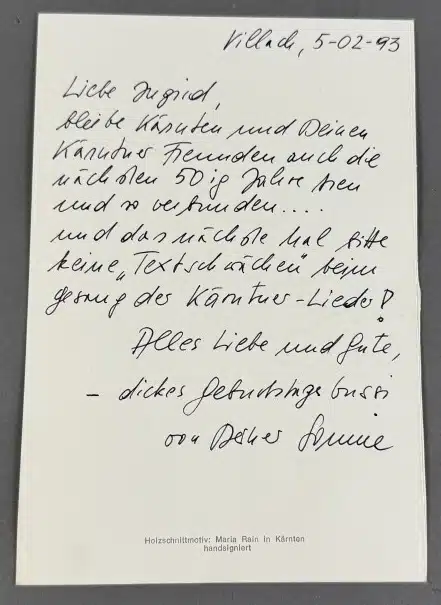 Villach, 5-02-93
Liebe Ingrid,
bleibe Kärnten und Deinen
Kärntner Freunden auch die
nächsten 50ig Jahre treu
und so verbunden....
und das nächste Mal bitte
keine „Textschwächen" beim
Gesang der Kärntner-Lieder!
Alles Liebe und Gute,
- dickes Geburtstagsbussi
von Deiner
Holzschnittmotiv: Maria Rain in Kärnten
handsigniert